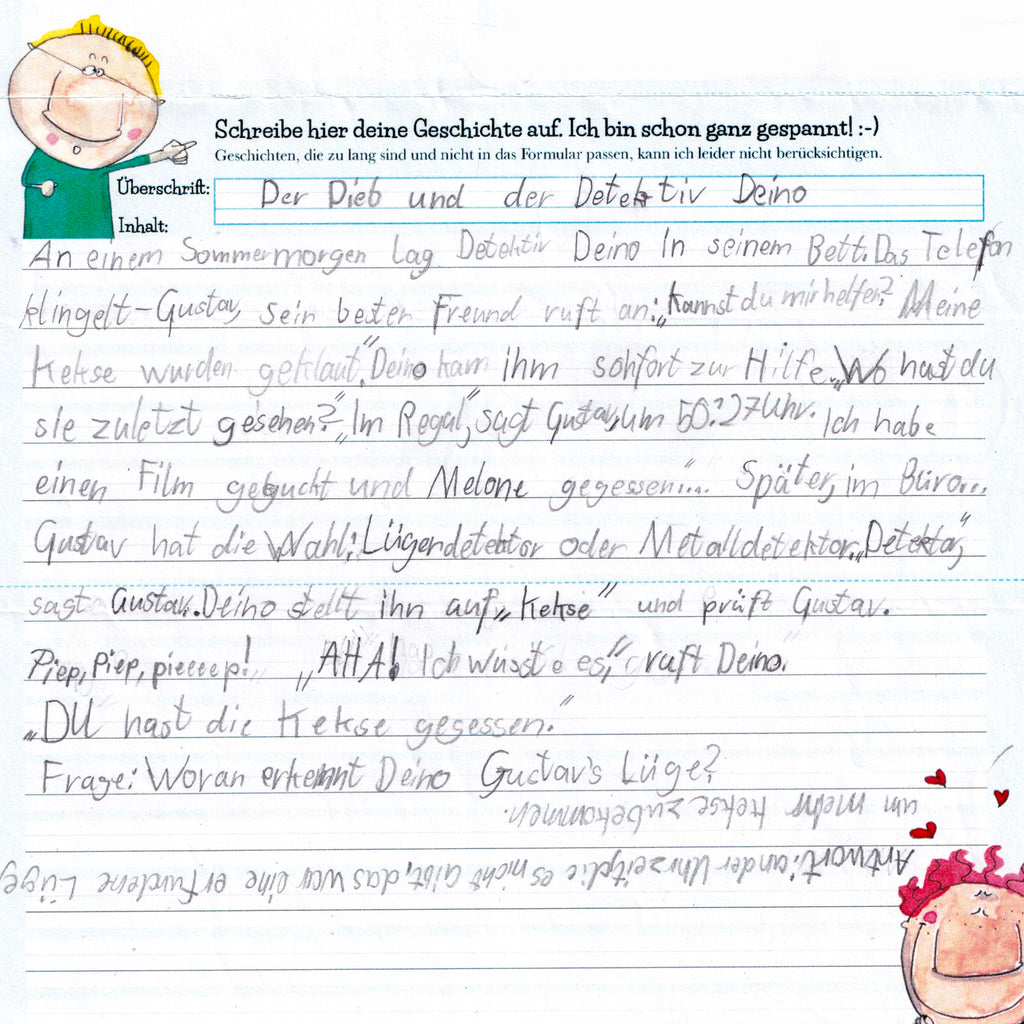 Schreibe hier deine Geschichte auf. Ich bin schon ganz gespannt! :-)
Geschichten, die zu lang sind und nicht in das Formular passen, kann ich leider nicht berücksichtigen.
Überschrift: Der Dieb und der Detektiv Deino
Inhalt:
An einem Sommermorgen lag Detektiv Deino In seinem Bett. Das Telefon
klingelt-Gustav, sein bester Freund ruft an: „kannst du mir helfen? Meine
Kekse wurden geklaut" Deino kam ihm sohfort zur Hilfe. „Wo hast du
sie zuletzt gesehen?" „Im Regal", sagt Gustav, um 50:27 Uhr. Ich habe
einen Film geguckt und Melone gegessen...." Später, im Büro...
Gustav hat die Wahl: Lügendetektor oder Metalldetektor. „Detektor,"
sagt Gustav. Deino stellt ihn auf „Kekse" und prüft Gustav.
Piep, Piep, pieeeep! „AHA! Ich wusste es," ruft Deino.
„DU hast die Kekse gegessen."
Frage: Woran erkennt Deino Gustav's Lüge?
Antwort: an der Uhrzeit, die es nicht gibt, das war eine erfundene Lüge
um mehr Kekse zubekommen.